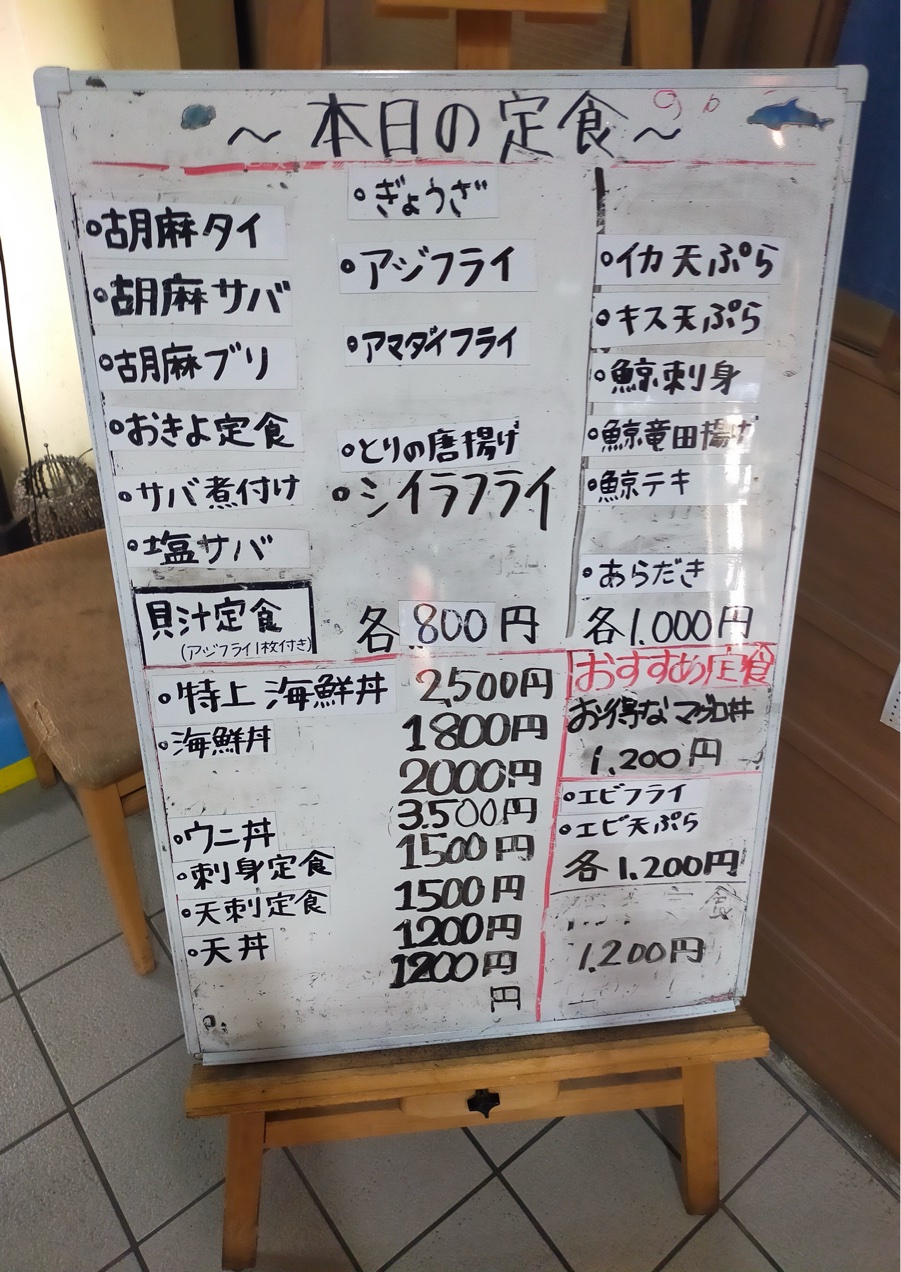 ～本日の定食～
・胡麻タイ
・胡麻サバ
・胡麻ブリ
・おきよ定食
・サバ煮付け
・塩サバ
貝汁定食
(アジフライ1枚付き)
・ぎょうざ
・アジフライ
・アマダイフライ
・とりの唐揚げ
・シイラフライ
各800円
・イカ天ぷら
・キス天ぷら
・鯨刺身
・鯨竜田揚げ
・鯨テキ
・あらだき
各1.000円
・特上海鮮丼 2,500円
・海鮮丼 1800円
2000円
3.500円
・ウニ丼 1500円
・刺身定食 1500円
・天刺定食 1200円
・天丼 1200円
円
おすすめ定食
お得なマグロ丼
1.200円
・エビフライ
・エビ天ぷら
各1.200円
定食
1.200円